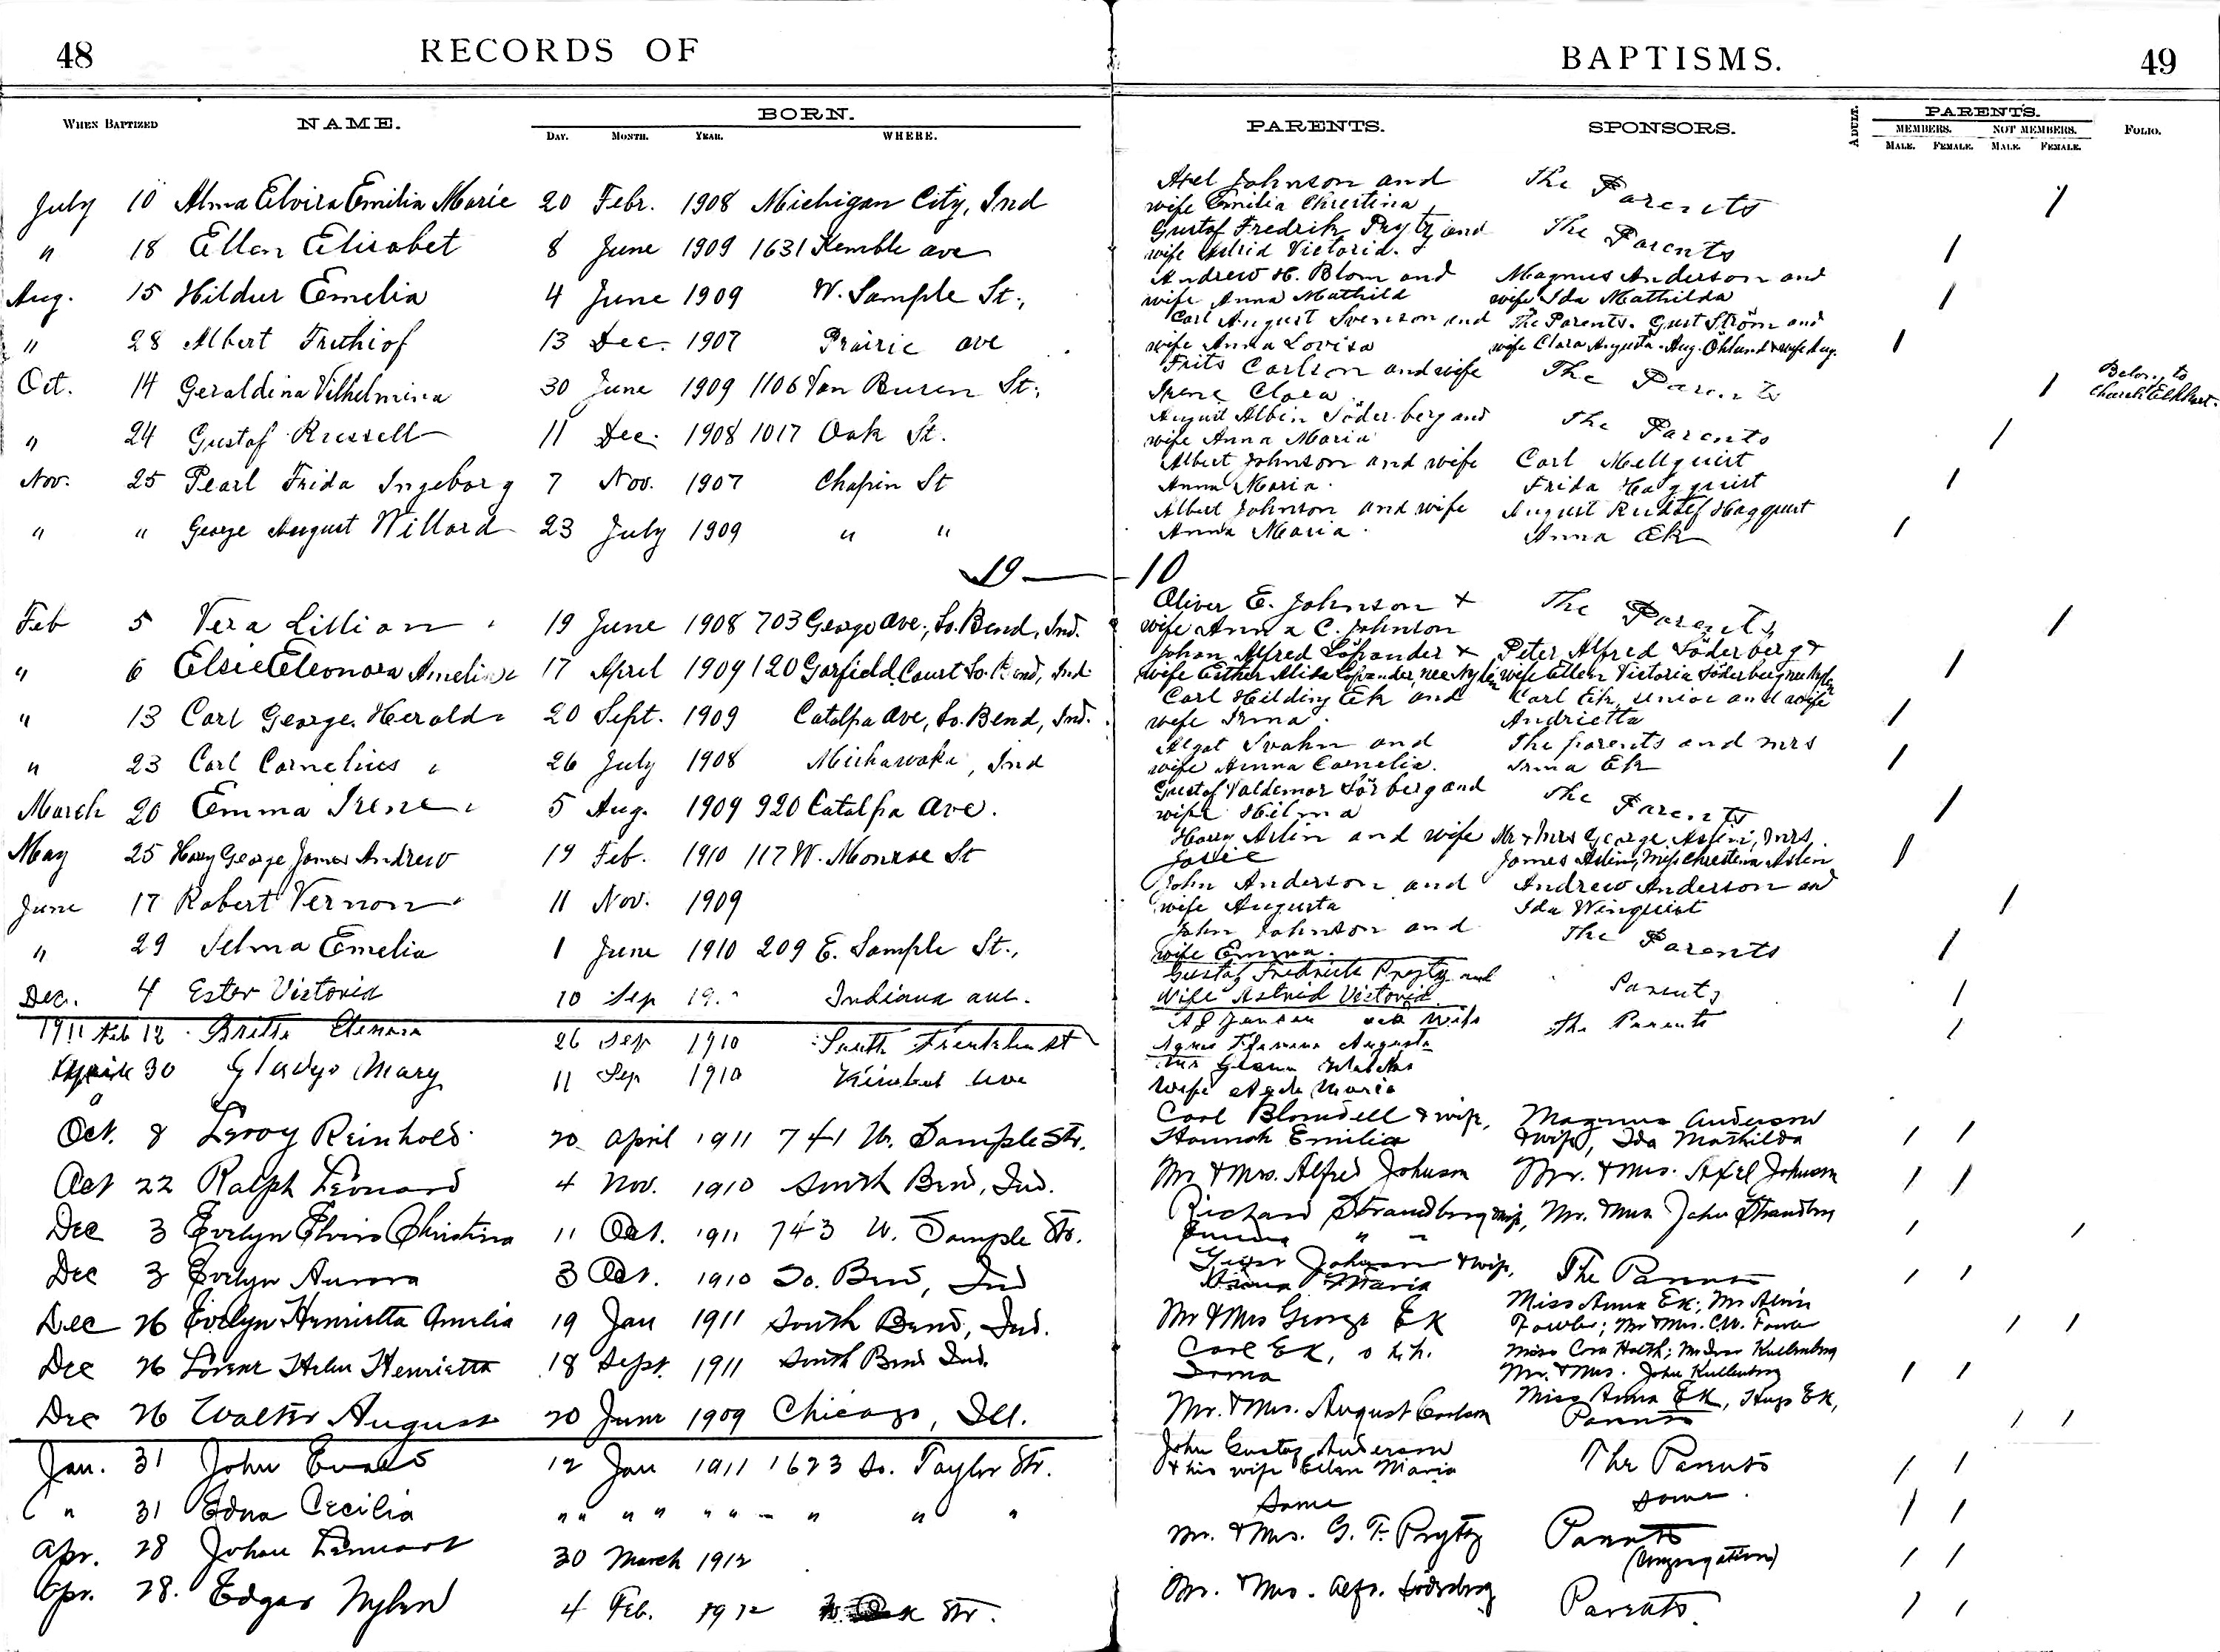 48 RECORDS OF
BAPTISMS. 49
WHEN BAPTIZED NAME. BORN.
DAY. MONTH. YEAR. WHERE.
PARENTS. SPONSORS. ADULT. PARENTS. FOLIO.
MEMBERS. NOT MEMBERS.
MALE. FEMALE. MALE. FEMALE.
July 10 Alma Elvira Emilia Marie 20 Febr. 1908 Michigan City, Ind
Axel Johnson and The Parents /
wife Emilia Christina
" 18 Ellen Elisabet 8 June 1909 1631 Kemble ave
Gustaf Fredrik Prytz and The Parents /
wife Astrid Victoria.
Aug. 15 Hildur Emelia 4 June 1909 W. Sample St.,
Andrew H. Blom and Magnus Anderson and /
wife Anna Mathild wife Ida Mathilda
" 28 Albert Frithiof 13 Dec. 1907 Prairie ave
Carl August Svenson and The Parents. Gust Ström and /
wife Anna Lovisa wife Clara Augusta. Aug. Öhlund & wife Aug.
Oct. 14 Geraldina Vilhelmina 30 June 1909 1106 Van Buren St.
Frits Carlson and wife The Parents / Belong to
Irene Clara Church Elkhart.
" 24 Gustaf Russell 11 Dec. 1908 1017 Oak St.
August Albin Söderberg and The Parents /
wife Anna Maria
Nov. 25 Pearl Frida Ingeborg 7 Nov. 1907 Chapin St
Albert Johnson and wife Carl Mellquist /
Anna Maria. Frida Hagquist
" " George August Willard 23 July 1909 " "
Albert Johnson and wife August Rudolf Hagquist /
Anna Maria. Anna Ek
19 — 10
Feb 5 Vera Lillian 19 June 1908 703 George Ave., So. Bend, Ind.
Oliver E. Johnson & The Parents /
wife Anna C. Johnson
" 6 Elsie Eleonora Amelia 17 April 1909 120 Garfield Court So. Bend, Ind.
Johan Alfred Löfander & Peter Alfred Söderberg & /
wife Esther Alida Löfander, nee Nylen wife Ellen Victoria Söderberg nee Nylen
" 13 Carl George Herald 20 Sept. 1909 Catalpa Ave, So. Bend, Ind.
Carl Hilding Ek and Carl Ek, senior and wife /
wife Irma. Andrietta
" 23 Carl Cornelius 26 July 1908 Mishawaka, Ind
Algot Svahn and The parents and mrs /
wife Anna Cornelia. Irma Ek
March 20 Emma Irene 5 Aug. 1909 920 Catalpa Ave.
Gustaf Valdemar Sörberg and The Parents /
wife Hilma
May 25 Harry George James Andrew 19 Feb. 1910 117 W. Monroe St
Harry Aslin and wife Mr & Mrs George Aslin, Mrs. /
James Aslin, Miss Christina Aslen
June 17 Robert Vernon 11 Nov. 1909
John Anderson and Andrew Anderson and /
wife Augusta Ida Winquist
" 29 Selma Emelia 1 June 1910 209 E. Sample St.,
John Johnson and The Parents /
wife Emma.
Dec. 4 Ester Victoria 10 Sep 19 Indiana ave.
Gustaf Fredrick Prytz and Parents /
Wife Astrid Victoria
1911 Feb 12 Britta Elenora 26 Sep 1910 South
and Wife The Parents /
Agnes Augusta
April 30 Gladys Mary 11 Sep 1910 Kimbel Ave
Wife Maria
Oct. 8 Leroy Reinhold 20 April 1911 741 W. Sample Str.
Carl Blomdell & wife, Magnus Anderson / /
Hannah Emilia & wife, Ida Mathilda
Oct 22 Ralph Leonard 4 Nov. 1910 South Bend, Ind.
Mr & Mrs. Alfred Johnson Mr. & Mrs. Axel Johnson / /
Dec 3 Evelyn Elvira Christina 11 Oct. 1911 743 W. Sample Str.
Richard Strandberg & wife, Mr. & Mrs John Strandberg / /
" "
Dec 3 Evelyn Aurora 3 Oct. 1910 So. Bend, Ind
Johnson & wife, The Parents / /
Maria
Dec 26 Evelyn Henrietta Amelia 19 Jan 1911 South Bend, Ind.
Mr & Mrs George Ek Miss Anna Ek; Mr Alvin / /
Fowler; Mr & Mrs. C.W. Fowler
Dec 26 Helen Henrietta 18 Sept. 1911 South Bend Ind.
Carl Ek, o. h. h. Miss Kullenberg / /
Irma Mr. & Mrs. John Kullenberg
Dec 26 Walter August 20 June 1909 Chicago, Ill.
Mr. & Mrs. August Carlson Miss Anna Ek, Hugo Ek, / /
Parents
Jan. 31 John 12 Jan 1911 1623 So. Taylor Str.
John Gustaf Anderson The Parents / /
& his wife Ellen Maria
" 31 Edna Cecilia " " " " " " " " "
Same same. / /
Apr. 28 Johan Lennart 30 March 1912
Mr. & Mrs. G. F. Prytz Parents / /
(Congregation)
Apr. 28. Edgar Nylen 4 Feb. 1912 Str.
Mr. & Mrs. Alfr. Söderberg Parents. / /